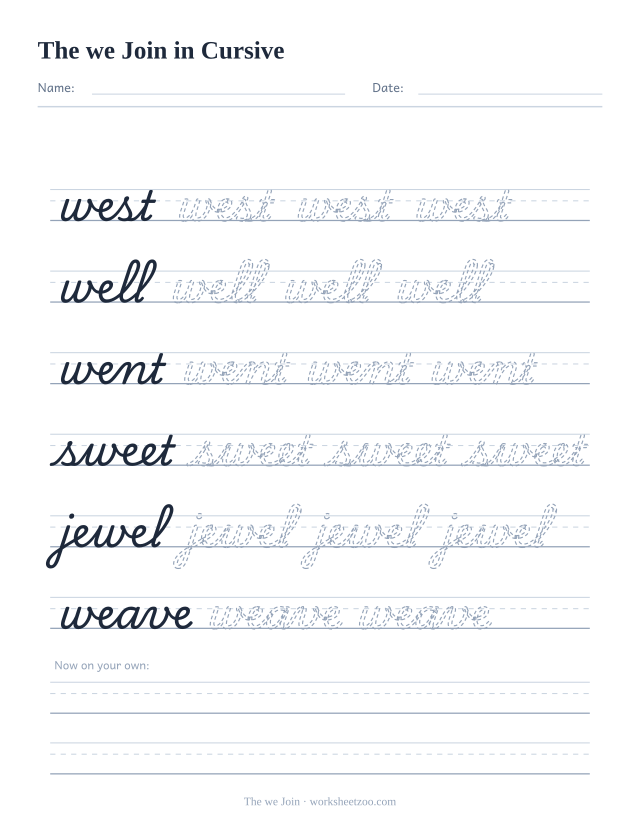 The we Join in Cursive
Name: Date:
west west west west
well well well well
went went went went
sweet sweet sweet sweet
jewel jewel jewel jewel
weave weave weave
Now on your own:
The we Join · worksheetzoo.com